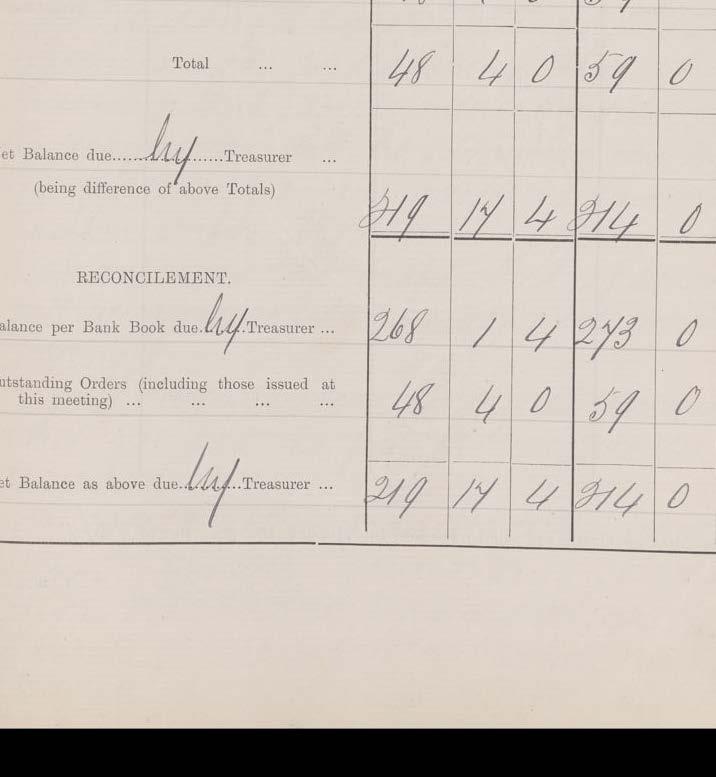 Total ... ... 48 4 0 59 0
et Balance due......by......Treasurer ...
(being difference of above Totals) 219 17 4 214 0
RECONCILEMENT.
alance per Bank Book due.by.Treasurer ... 268 1 4 273 0
utstanding Orders (including those issued at
this meeting) ... ... ... ... 48 4 0 59 0
et Balance as above due..by..Treasurer ... 219 17 4 214 0